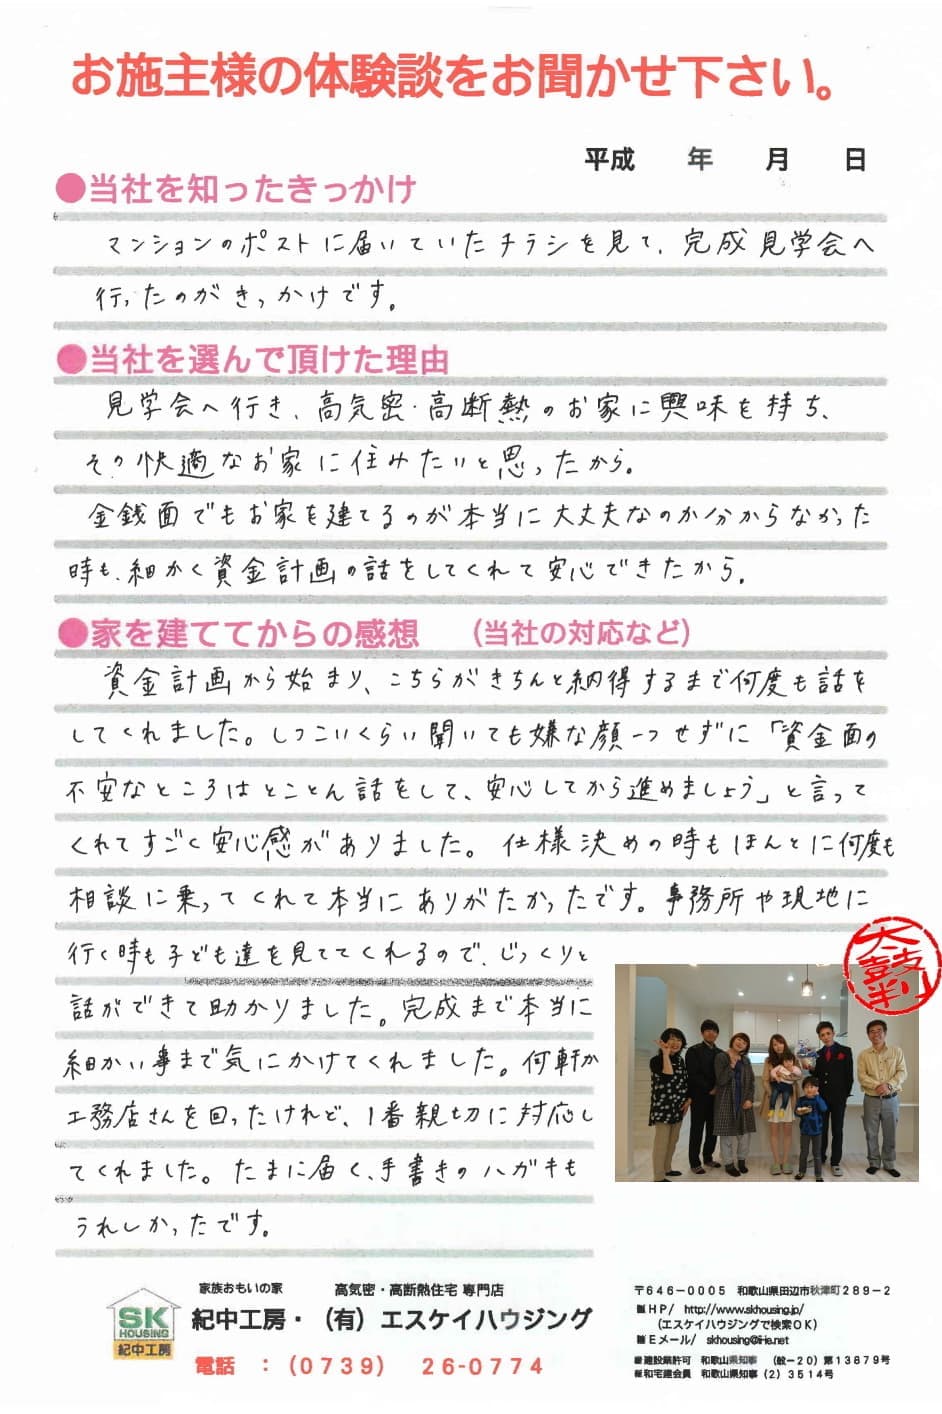 お施主様の体験談をお聞かせ下さい。
平成　年　月　日
●当社を知ったきっかけ
マンションのポストに届いていたチラシを見て、完成見学会へ
行ったのがきっかけです。
●当社を選んで頂けた理由
見学会へ行き、高気密・高断熱のお家に興味を持ち、
その快適なお家に住みたいと思ったから。
金銭面でもお家を建てるのが本当に大丈夫なのか分からなかった
時も、細かく資金計画の話をしてくれて安心できたから。
●家を建ててからの感想　（当社の対応など）
資金計画から始まり、こちらがきちんと納得するまで何度も話を
してくれました。しつこいくらい聞いても嫌な顔一つせずに「資金面の
不安なところはとことん話をして、安心してから進めましょう」と言って
くれてすごく安心感がありました。仕様決めの時もほんとに何度も
相談に乗ってくれて本当にありがたかったです。事務所や現地に
行く時も子ども達を見ててくれるので、じっくりと
話ができて助かりました。完成まで本当に
細かい事まで気にかけてくれました。何軒か
工務店さんを回ったけれど、1番親切に対応し
てくれました。たまに届く、手書きのハガキも
うれしかったです。
太鼓判
SK
HOUSING
紀中工房
家族おもいの家　高気密・高断熱住宅 専門店
紀中工房・（有）エスケイハウジング
電話　：（0739）　26-0774
〒646－0005　和歌山県田辺市秋津町289－2
■HP/　http://www.skhousing.jp/
（エスケイハウジングで検索OK）
■Eメール/　skhousing@iHe.net
■建設業許可　和歌山県知事　（般－20）第13879号
■和宅建会員　和歌山県知事（2）3514号